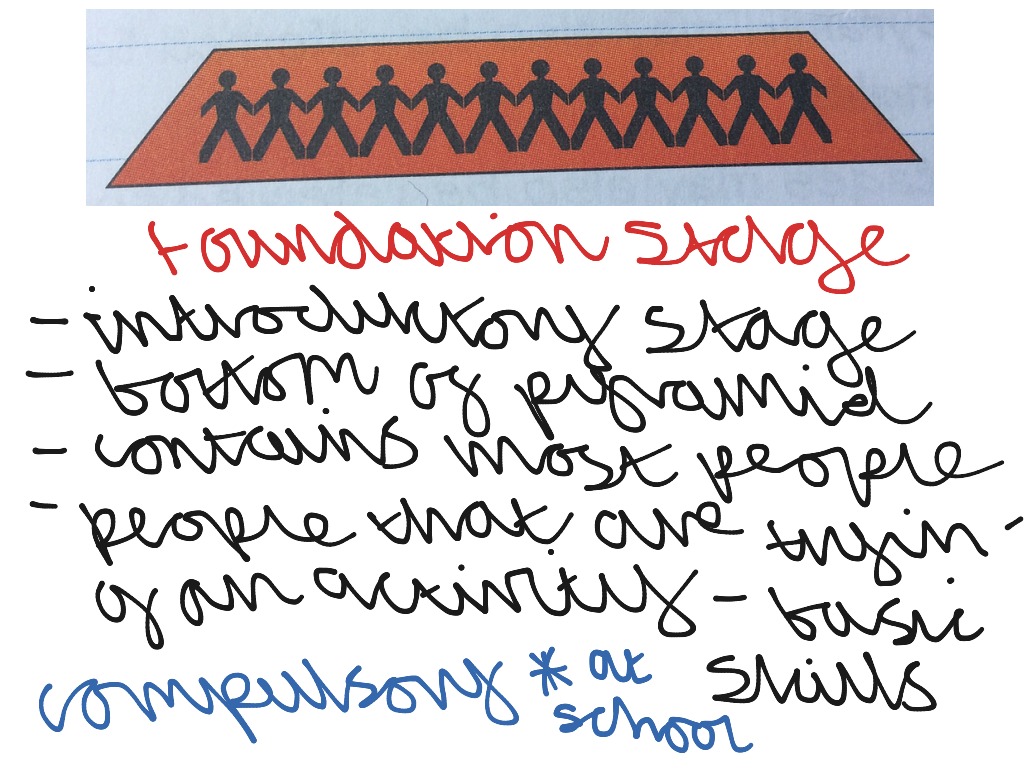 Foundation Stage
- introductory stage
- bottom of pyramid
- contains most people
- people that are tryin-
of an activity - basic
skills
compulsory * at
school